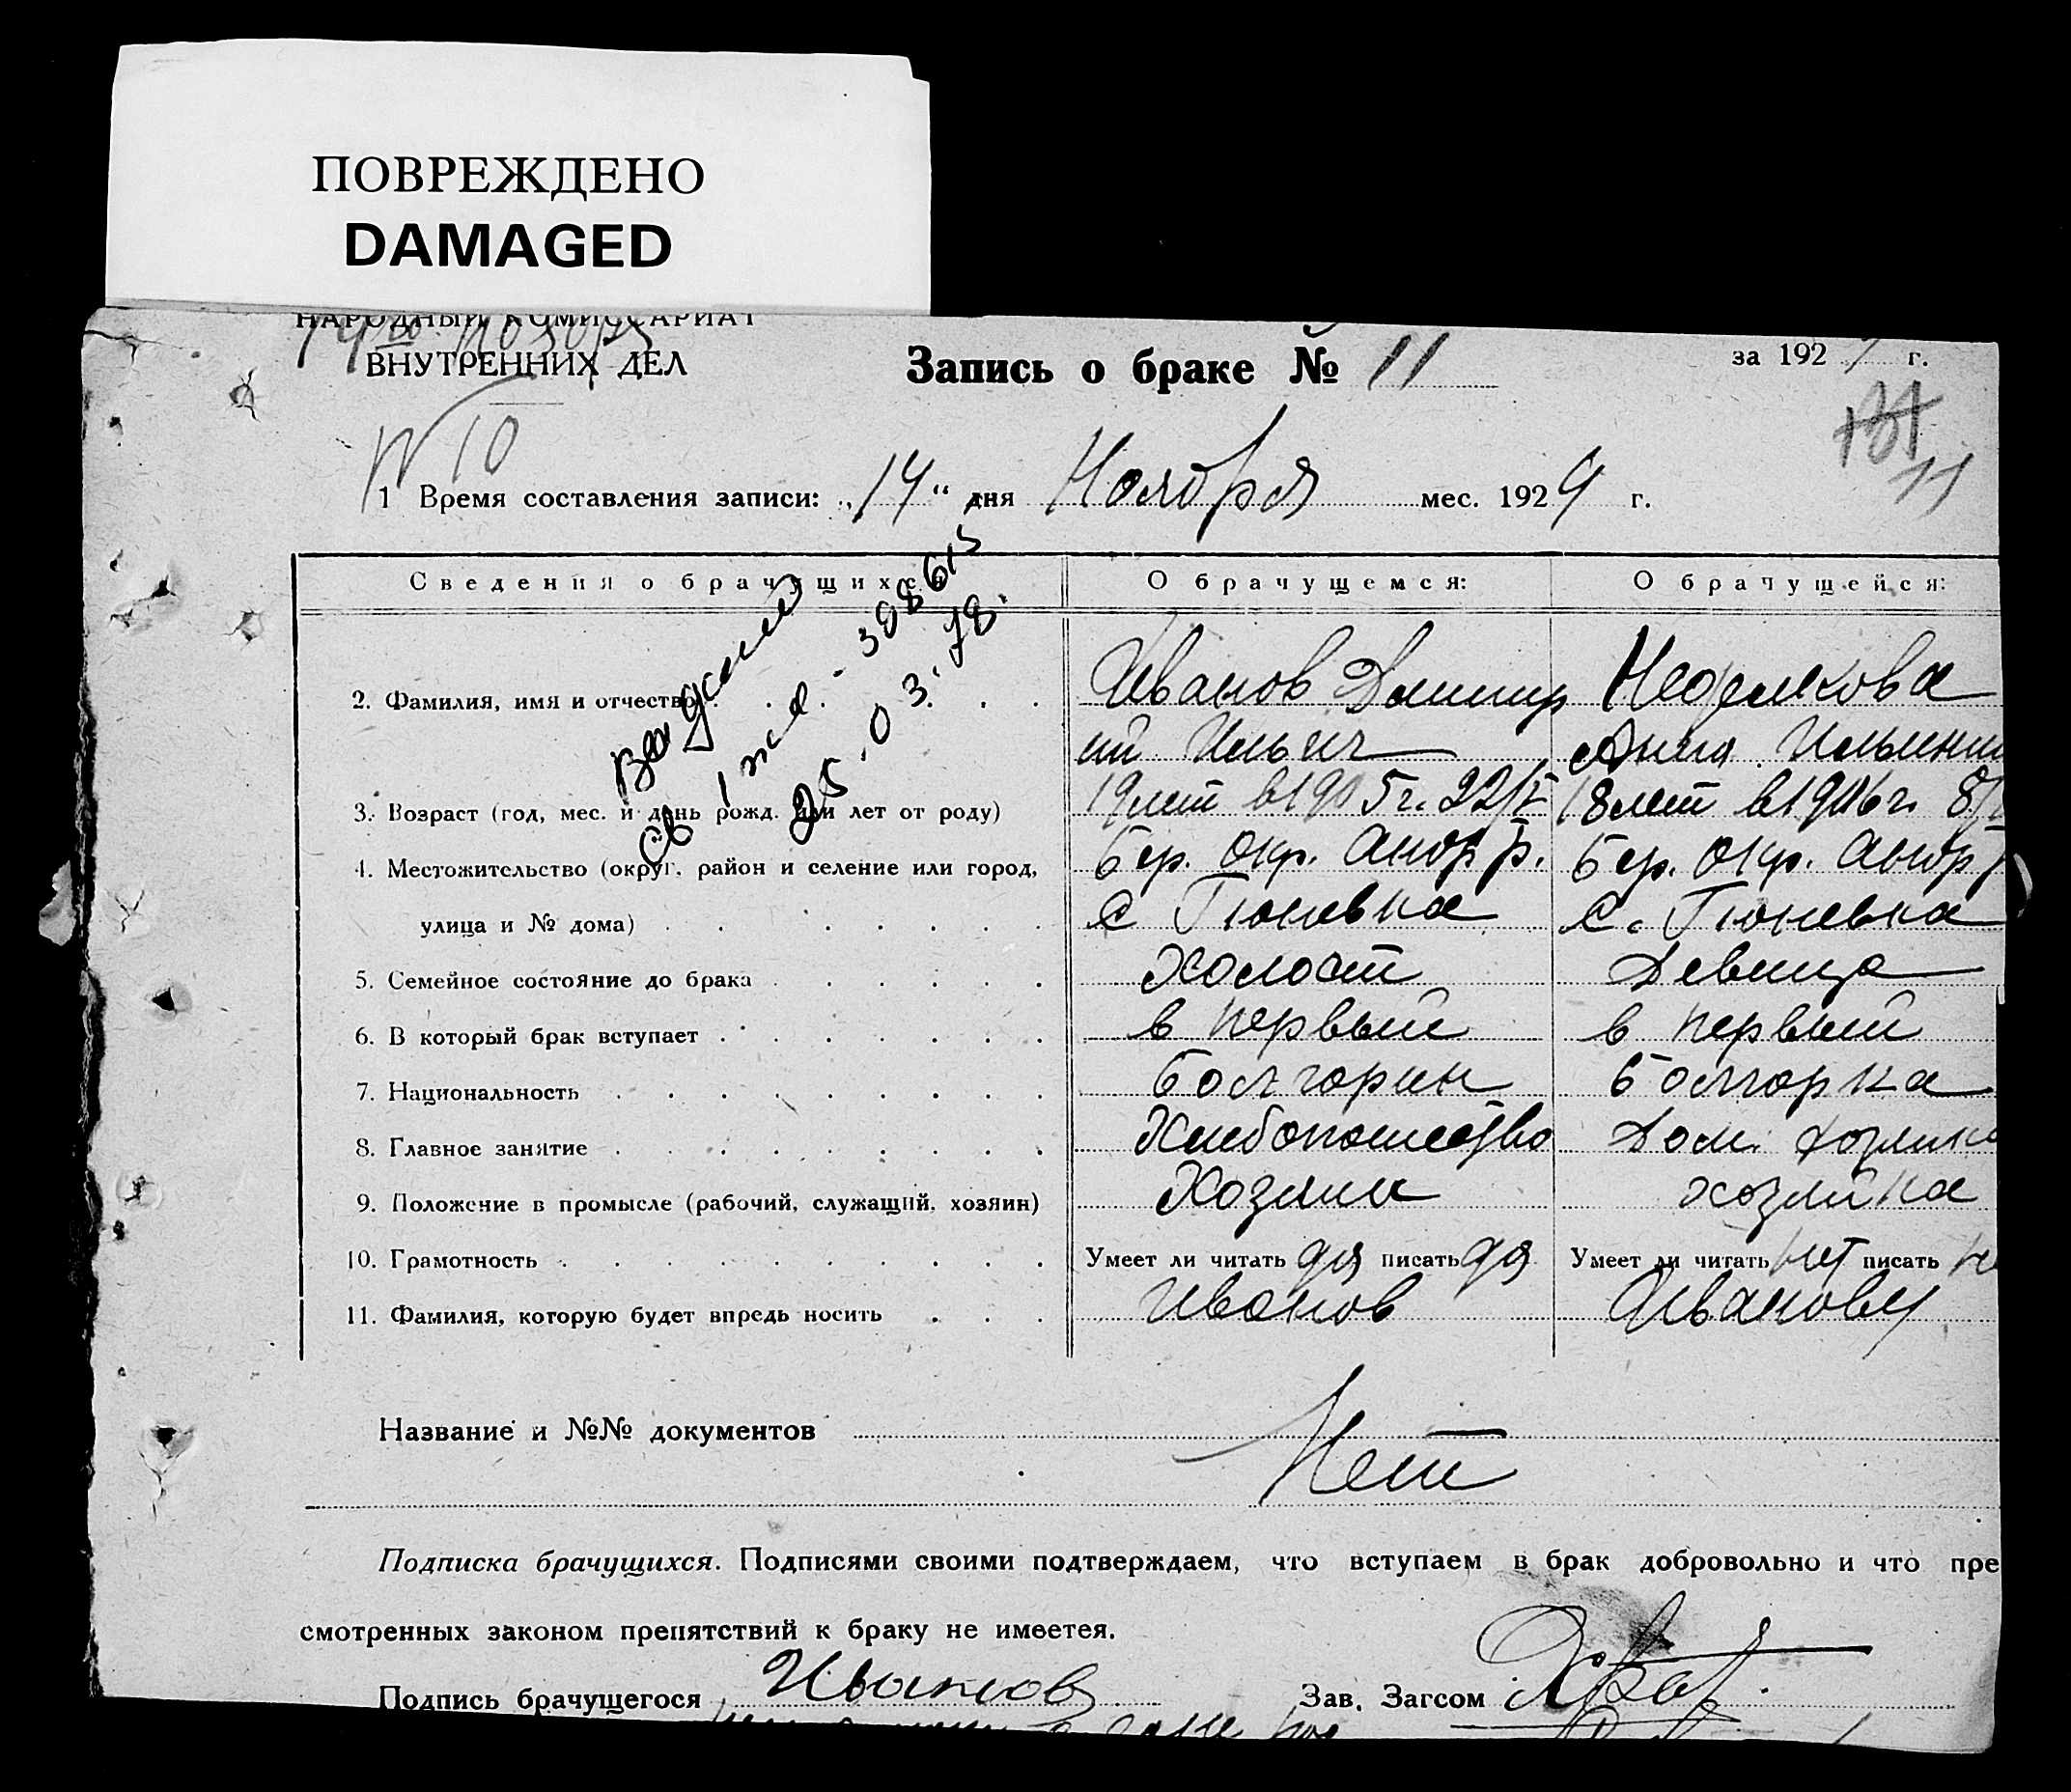 ПОВРЕЖДЕНО
DAMAGED
НАРОДНЫЙ КОМИССАРИАТ
ВНУТРЕННИХ ДЕЛ
Запись о браке № 11
за 192 г.
№ 10
11
1 Время составления записи: „14" дня Ноября мес. 1924 г.
Сведения о брачущихся
О брачущемся:
О брачущейся:
2. Фамилия, имя и отчество
Иванов Дмитр
ий Ильич
Неделкова
Анна Ильинич
3. Возраст (год, мес. и день рожд. или лет от роду)
19 лет в 1905 г. 22/V
18 лет в 1906 г. 8/
4. Местожительство (округ, район и селение или город,
улица и № дома)
Бер. Окр. Андр. р.
с Гюневка
Бер. Окр. Андр р
с. Гюневка
5. Семейное состояние до брака
Холост
Девица
6. В который брак вступает
в первый
в первый
7. Национальность
болгорин
болгорка
8. Главное занятие
Хлебопашество
Дом. хозяйка
9. Положение в промысле (рабочий, служащий, хозяин)
Хозяин
хозяйка
10. Грамотность
Умеет ли читать да писать да
Умеет ли читать нет писать не
11. Фамилия, которую будет впредь носить
Иванов
Иванову
Выдано
св 1 жд - 398615
25.03.78.
Название и №№ документов
Нет
Подписка брачущихся. Подписями своими подтверждаем, что вступаем в брак добровольно и что пре
смотренных законом препятствий к браку не имеетея.
Подпись брачущегося Иванов
Зав. Загсом